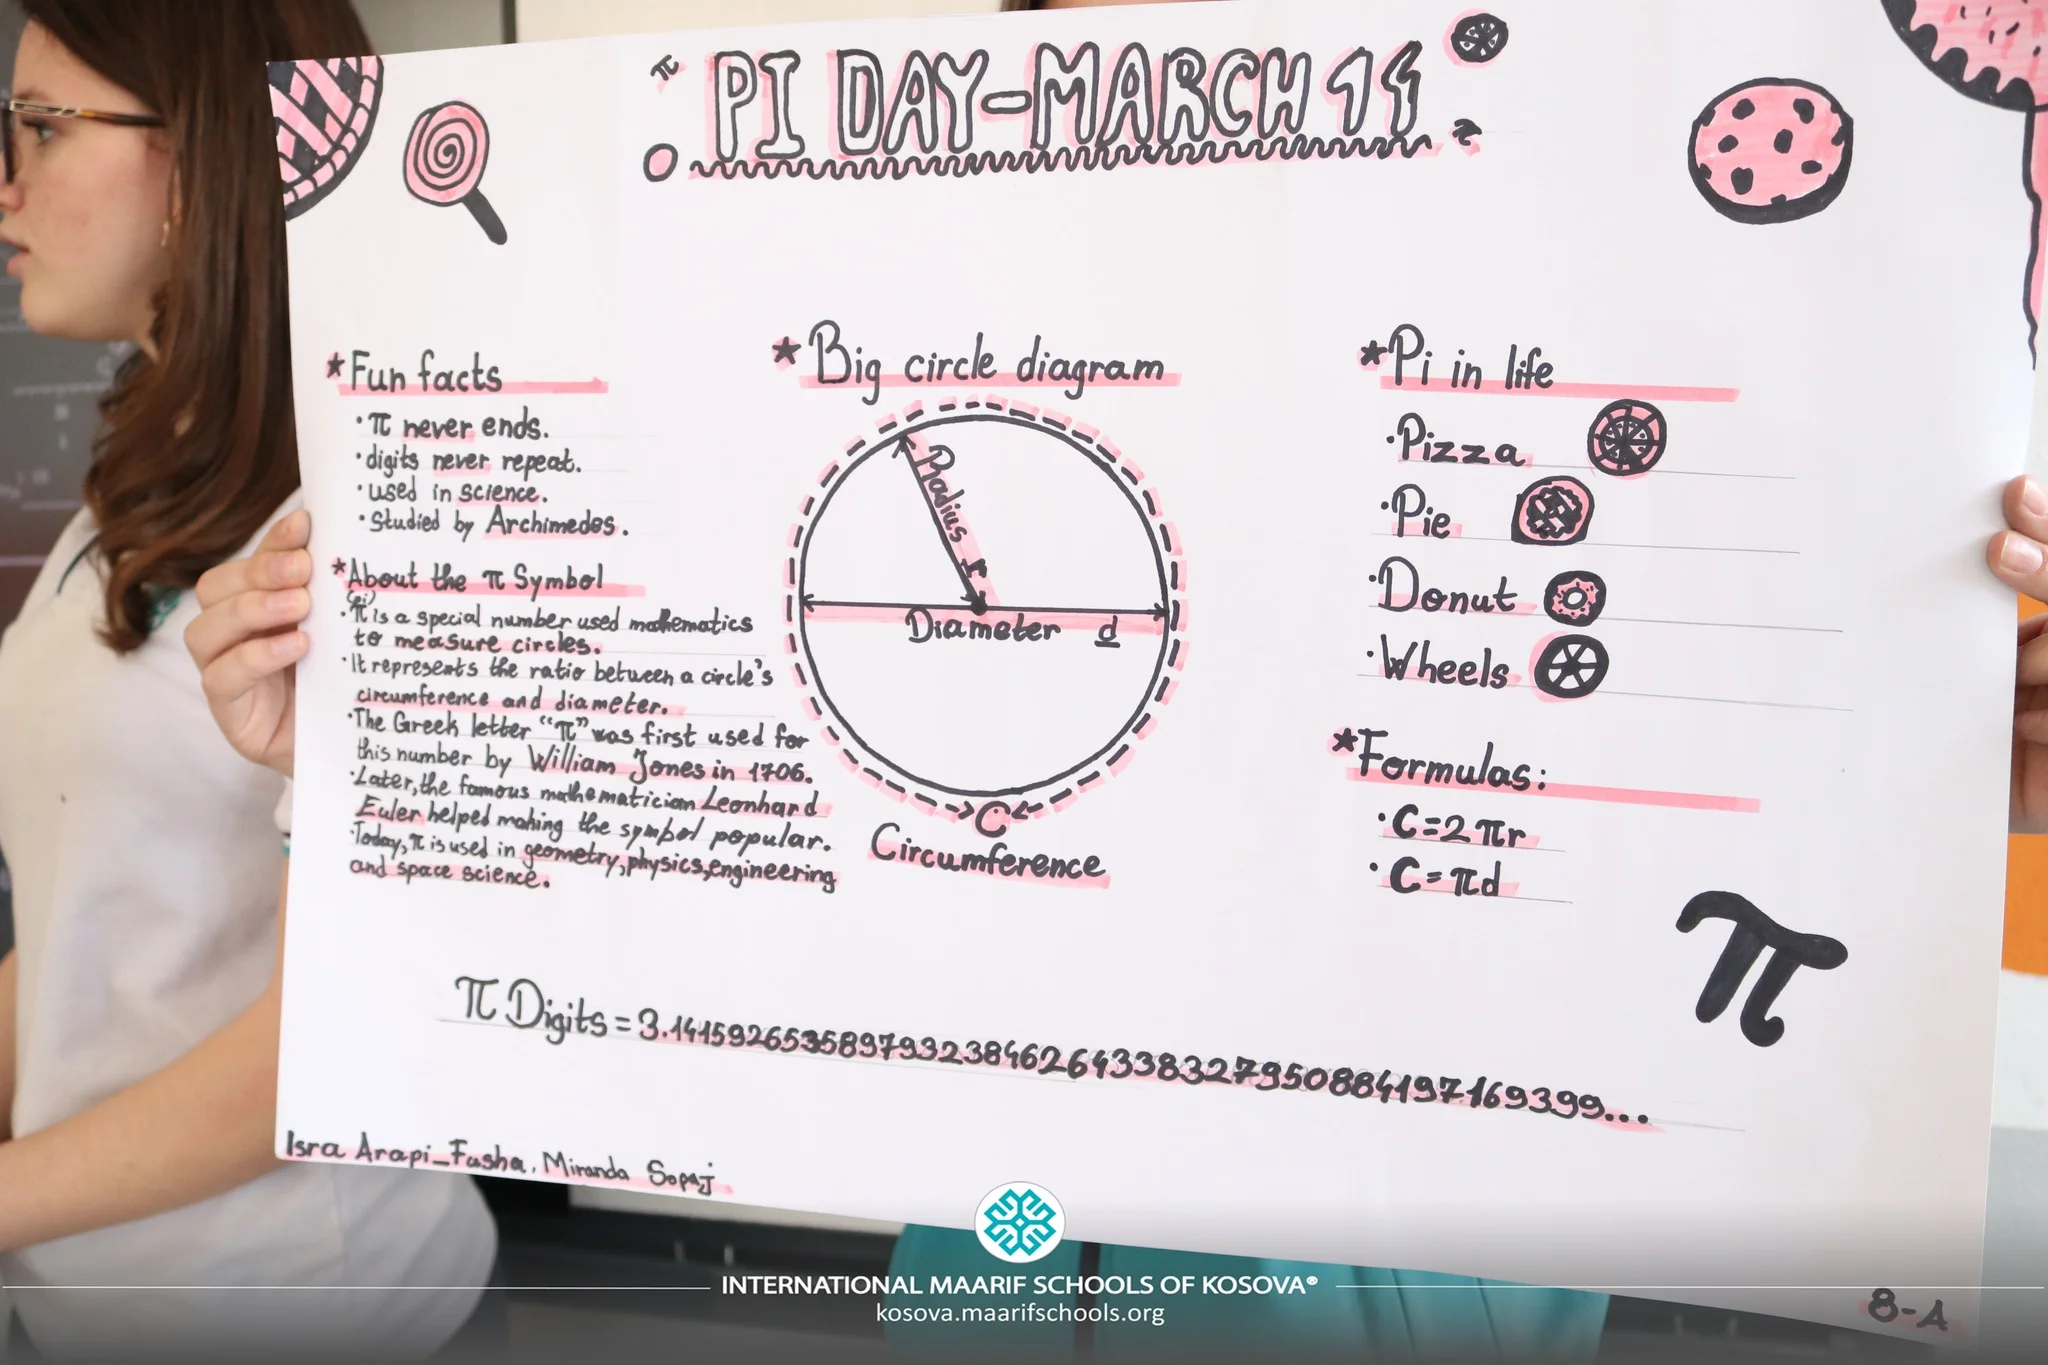 π PI DAY-MARCH 14
*Fun facts
·π never ends.
·digits never repeat.
·used in science.
·Studied by Archimedes.
*About the π Symbol
(pi)
·π is a special number used mathematics
to measure circles.
·It represents the ratio between a circle's
circumference and diameter.
·The Greek letter "π" was first used for
this number by William Jones in 1706.
·Later, the famous mathematician Leonhard
Euler helped making the symbol popular.
·Today, π is used in geometry, physics, engineering
and space science.
*Big circle diagram
Radius r
Diameter d
C
Circumference
*Pi in life
·Pizza
·Pie
·Donut
·Wheels
*Formulas:
·C=2πr
·C=πd
π
π Digits = 3.14159265358979323846264338327950884197169399...
Isra Arapi_Fusha, Miranda Sopaj
8-A
INTERNATIONAL MAARIF SCHOOLS OF KOSOVA®
kosova.maarifschools.org